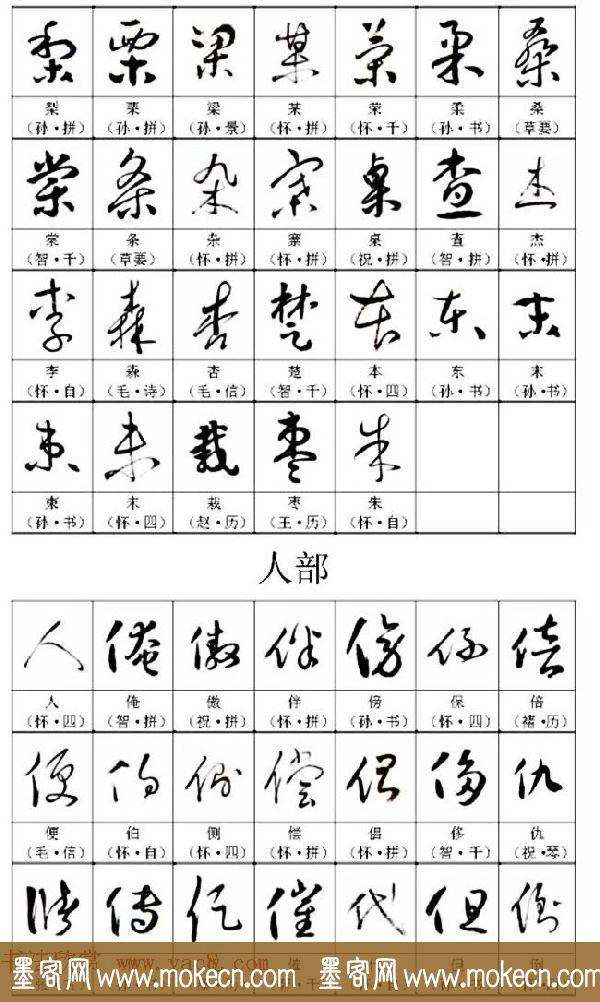 梨 栗 梁 某 荣 柔 桑
（孙·拼） （孙·拼） （孙·景） （怀·拼） （怀·千） （孙·书） （草要）
棠 条 杂 寨 桌 查 杰
（智·千） （草要） （怀·拼） （怀·拼） （祝·拼） （智·拼） （怀·拼）
李 森 杏 楚 本 东 末
（怀·自） （毛·诗） （毛·信） （智·千） （怀·四） （孙·书） （孙·书）
柬 未 栽 枣 朱
（孙·书） （怀·四） （赵·历） （王·历） （怀·自）
人部
人 俺 傲 伴 傍 保 倍
（怀·四） （智·拼） （祝·拼） （怀·拼） （孙·书） （怀·四） （褚·历）
便 伯 侧 偿 倡 侈 仇
（毛·信） （怀·自） （怀·四） （怀·拼） （怀·拼） （智·千） （祝·琴）
墨客网 www.mokecn.com 墨客网 www.mokecn.com